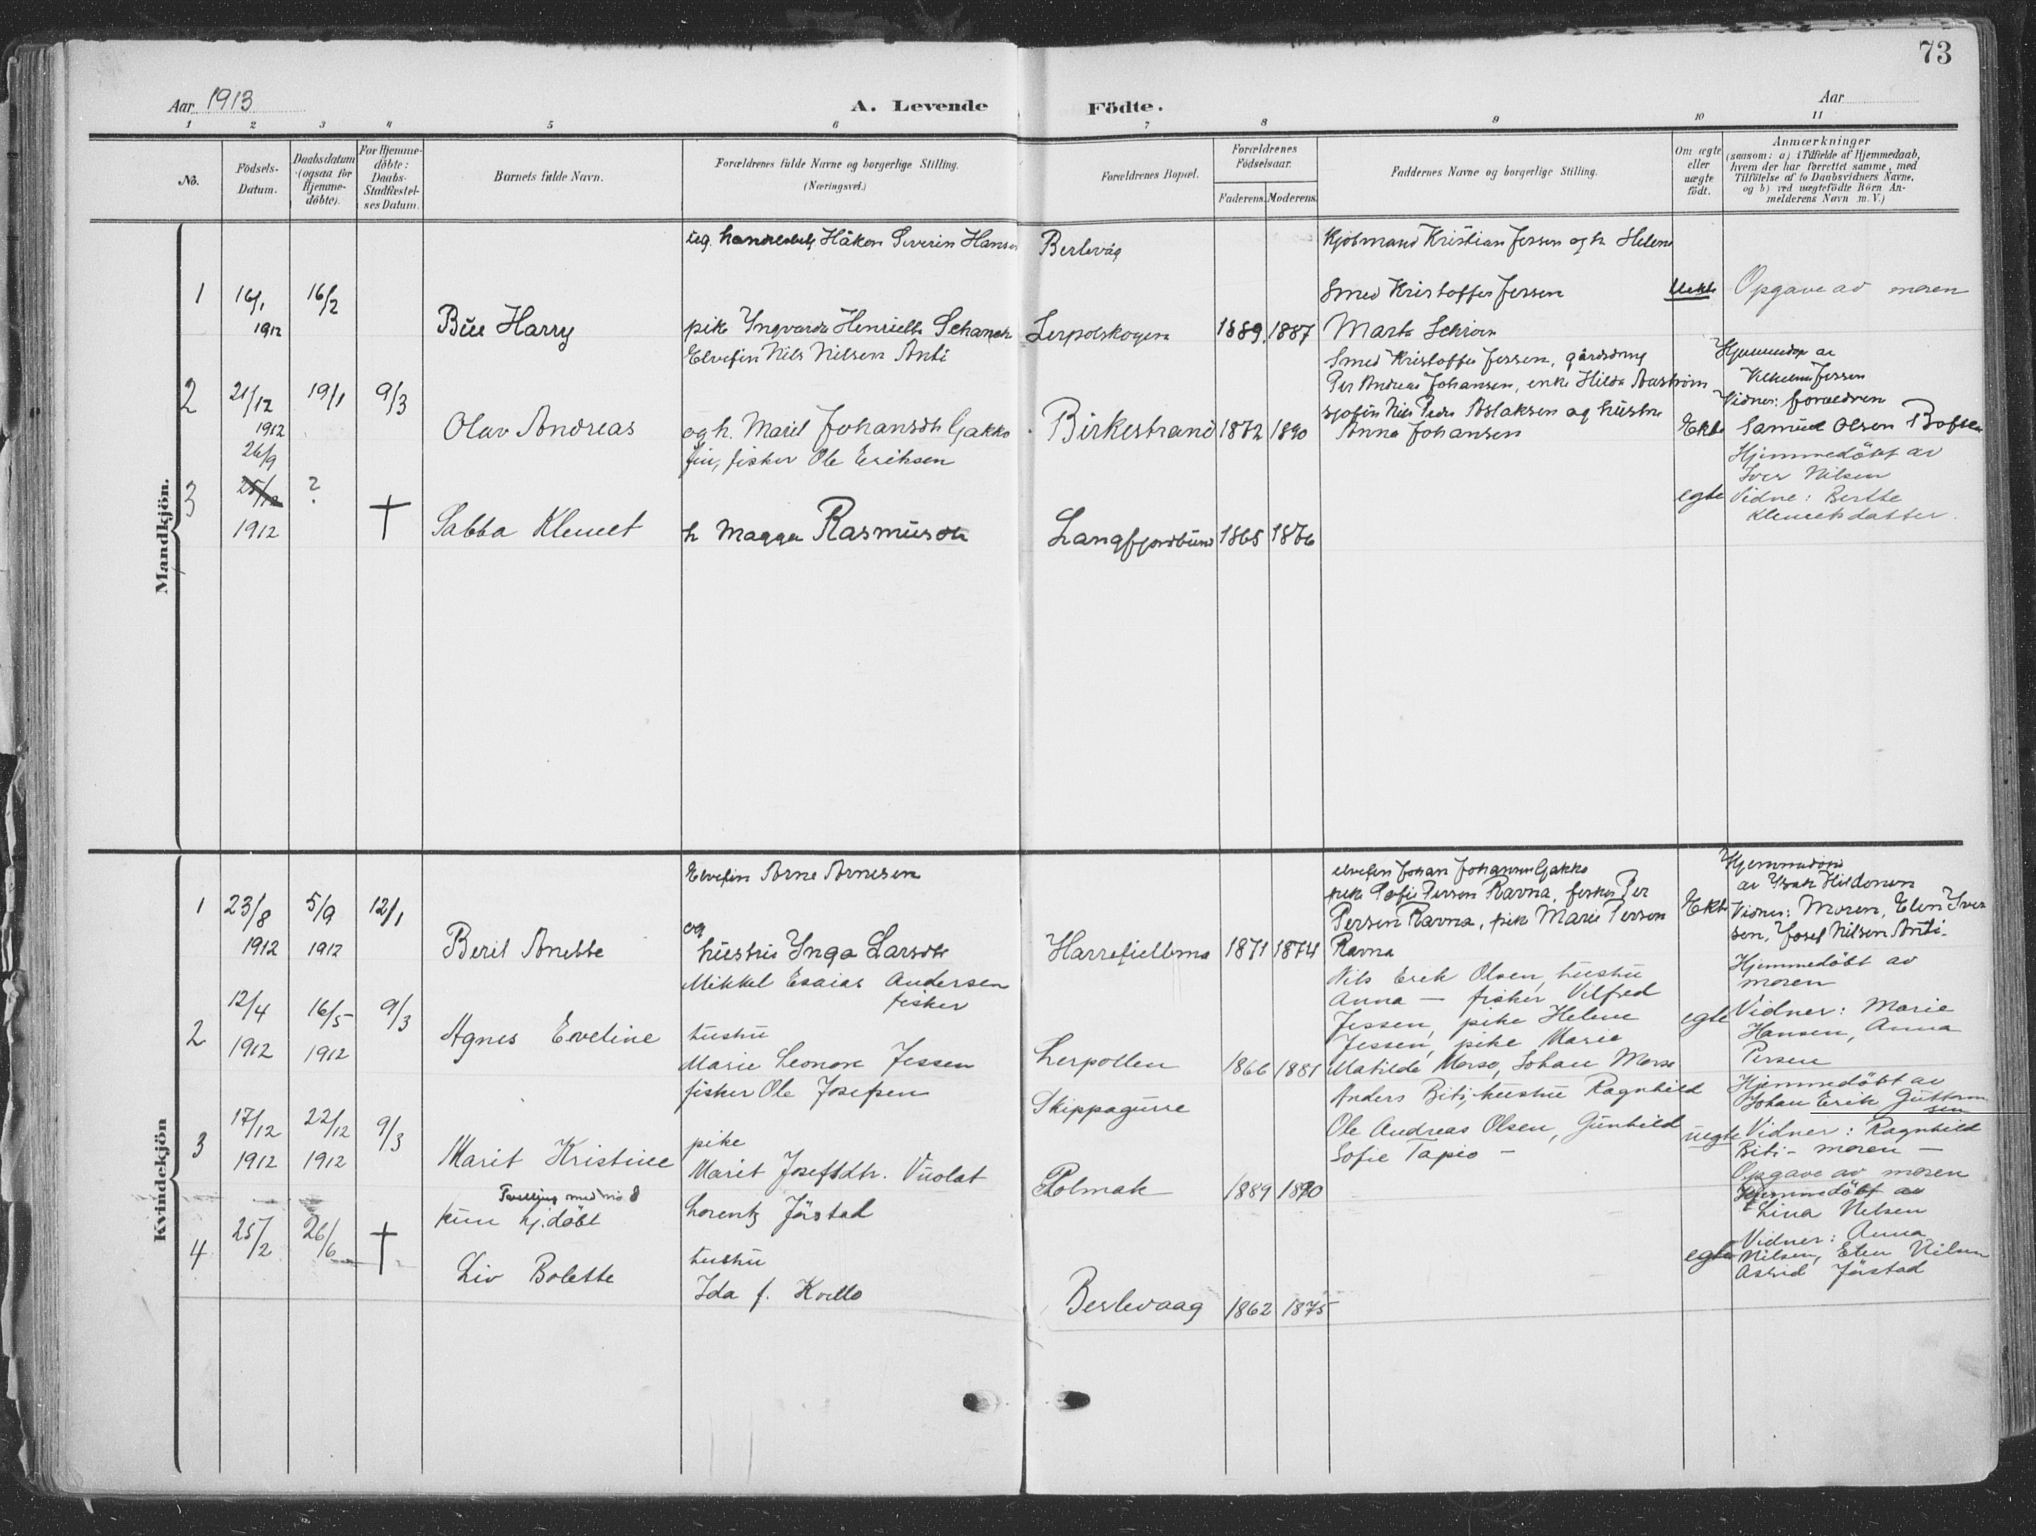 73
Aar 1913
A. Levende Födte.
Aar
1 2 3 4 5 6 7 8 9 10 11
No.
Födsels-
Datum.
Daabsdatum
(ogsaa for
Hjemme-
döbte).
For Hjemme-
döbte:
Daabs-
Stadfæstel-
ses Datum.
Barnets fulde Navn.
Forældrenes fulde Navne og borgerlige Stilling.
(Næringsvei.)
Forældrenes Bopæl.
Forældrenes
Födselsaar.
Faderens. Moderens.
Faddernes Navne og borgerlige Stilling.
Om ægte
eller
uægte
födt.
Anmærkninger
(saasom: a) i Tilfælde af Hjemmedaab,
hvem der har forrettet samme, med
Tilföielse af to Daabsvidners Navne,
og b) ved uægtefödte Börn An-
melderens Navn m. V.)
Mandkjön.
1
16/1
1912
16/2
Büe Harry
ug. handelsbetj Håkon Severin Hansen
pike Yngvarda Henriette Schanche
Berlevåg
Lerpolskogen
1889. 1887
Kjöbmand Kristian Jessen og h Helene
Smed Kristoffer Jessen
Marta Schröer
Uekte
Opgave av moren
2
21/12
1912
19/1
9/3
Olav Andreas
Elvefin Nils Nilsen Anti
og h. Marit Johansdtr Gakko
Birkestrand
1872 1890
Smed Kristoffer Jessen, gårdsdreng
Per Andreas Johansen, enke Hilda Aaström
sjöfin Nils Peder Aslaksen og hustru
Anna Johansen
Ekte
Hjemmedöp av
Vilhelm Jessen
Vidner: foreldren
Samuel Olsen
3
26/9
25/12
1912
?
†
Sabba Klemet
fin, fisker Ole Eriksen
h Magga Rasmusdtr
Langfjordbund
1865 1876
egte
Hjemmedöbt av
Iver Nilsen
Vidne: Berthe
Klemetsdatter.
Kvindekjön
1
23/8
1912
5/9
1912
12/1
Berit Anette
Elvefin Arne Arnesen
og
hustru Inga Larsdtr
Harrefjellbma
1871 1874
elvefin Johan Johannes Gakko
pike Sofie Persen Ravna, fisker Per
Persen Ravna, pike Marie Persen
Ravna
Ekte
Hjemmedöpt
av Ysak Hildonen
Vidner: Moren, Elen Iver
sen, Josef Nilsen Anti.
2
12/4
1912
16/5
1912
9/3
Agnes Eveline
Mikkel Esaias Andersen
fisker
hustru
Marie Leonore Jessen
Lerpollen
1866 1881
Nils Erik Olsen, hustru
Anna — fisker Vilfred
Jessen, pike Helene
Jessen, pike Marie
Matilde Morso, Johan Morso
egte
Hjemmedöbt av
moren
Vidner: Marie
Hansen, Anna
Persen
3
17/12
1912
22/12
1912
9/3
Marit Kristine
fisker Ole Josefsen
pike
Marit Josefsdtr. Vuolat
Skippagurre
Polmak
1889 1890
Anders Biti, hustru Ragnhild
Ole Andreas Olsen, Gunhild
Sofie Tapio —
uegte
Hjemmedöbt av
Johan Erik Guttorm
sen
Vidner: Ragnhild
Biti — moren —
Opgave av moren
4
25/2
26/6
†
Tvilling med no 8
kun hj.döbt
Liv Bolette
Lorentz Jörstad
hustru
Ida f. Kvello
Berlevaag
1862 1875
egte
Hjemmedöbt av
Lina Nilsen
Vidner: Anna
Nilsen, Elen Nilsen
Astrid Jörstad